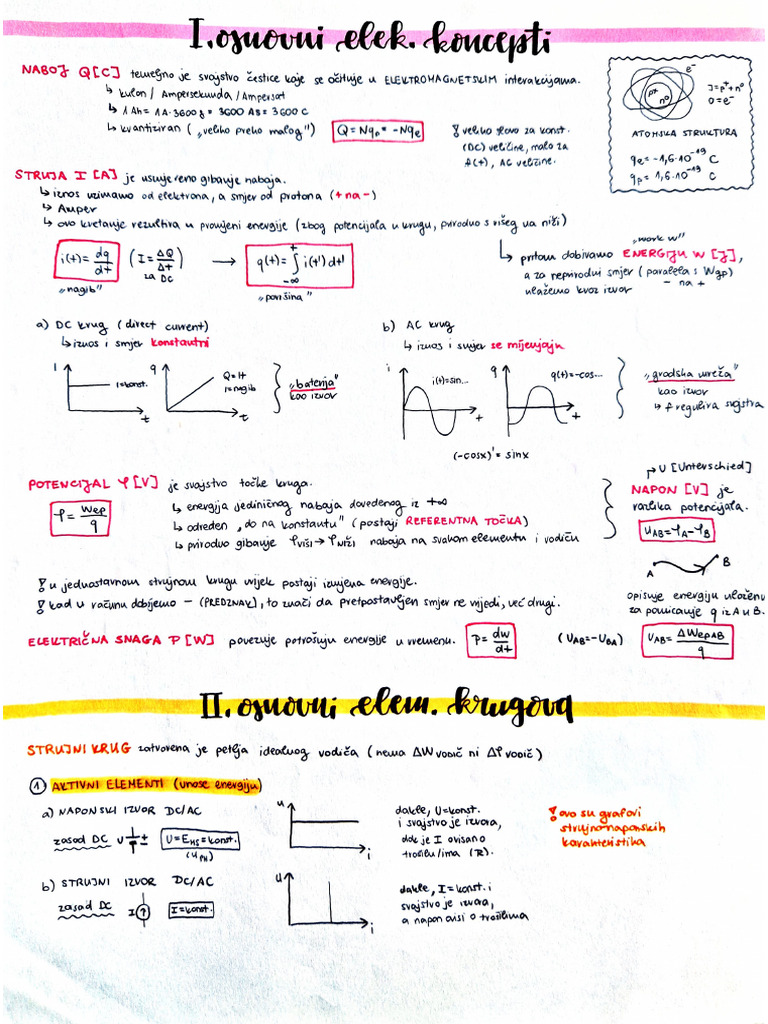 I. osnovni elek. koncepti
NABOJ Q [C] temeljno je svojstvo čestice koje se očituje u ELEKTROMAGNETSKIM interakcijama.
↳ kulon / Ampersekunda / Ampersat
↳ 1 Ah = 1A·3600s = 3600 As = 3600 C
↳ kvantiziran („veliko preko malog") Q = Nqp * -Nqe
! veliko slovo za konst.
(DC) veličine, malo za
f(t), AC veličine.
e⁻
p⁺
n⁰
J = p⁺ + n⁰
O = e⁻
ATOMSKA STRUKTURA
qe = -1,6·10⁻¹⁹ C
qp = 1,6·10⁻¹⁹ C
STRUJA I [A] je usmjereno gibanje naboja.
↳ iznos uzimamo od elektrona, a smjer od protona (+ na -)
↳ Amper
↳ ovo kretanje rezultira u promjeni energije (zbog potencijala u krugu, prirodno s višeg na niži)
i(t) = dq/dt (I = ΔQ/Δt za DC) → q(t) = ∫ -∞ t i(t') dt'
„nagib"
„površina"
„work W"
↳ pritom dobivamo ENERGIJU W [J],
a za neprirodni smjer (paralela s Wgp)
- na +
ulažemo kroz izvor
a) DC krug (direct current)
↳ iznos i smjer konstantni
I
I = konst.
t
q
Q = It
I = nagib
t
„baterija"
kao izvor
b) AC krug
↳ iznos i smjer se mijenjaju
i
i(t) = sin...
t
q
q(t) = -cos...
t
(-cosx)' = sinx
„gradska mreža"
kao izvor
↳ f regulira svojstva
POTENCIJAL φ [V] je svojstvo točke kruga.
φ = Wep/q
↳ energija jediničnog naboja dovedenog iz +∞
↳ određen „do na konstantu" (postoji REFERENTNA TOČKA)
↳ prirodno gibanje φviši → φniži naboja na svakom elementu i vodiču
↱ U [Unterschied]
NAPON [V] je
razlika potencijala.
UAB = φA - φB
A
B
opisuje energiju uloženu
za pomicanje q iz A u B.
! u jednostavnom strujnom krugu uvijek postoji izmjena energije.
! kad u računu dobijemo - (PREDZNAK), to znači da pretpostavljen smjer ne vrijedi, već drugi.
ELEKTRIČNA SNAGA P [W] povezuje potrošnju energije u vremenu. P = dw/dt (UAB = -UBA) UAB = ΔWepAB/q
II. osnovni elem. krugova
STRUJNI KRUG zatvorena je petlja idealnog vodiča (nema ΔW vodič ni Δφ vodič)
① AKTIVNI ELEMENTI (unose energiju)
a) NAPONSKI IZVOR DC/AC
zasad DC U + U = EMS = konst.
(UPH)
u
i
dakle, U = konst.
i svojstvo je izvora,
dok je I ovisano
trošilu/ima (R).
! ovo su grafovi
strujnonaponskih
karakteristika
b) STRUJNI IZVOR DC/AC
zasad DC I ↑ I = konst.
u
i
dakle, I = konst. i
svojstvo je izvora,
a napon ovisi o trošilima